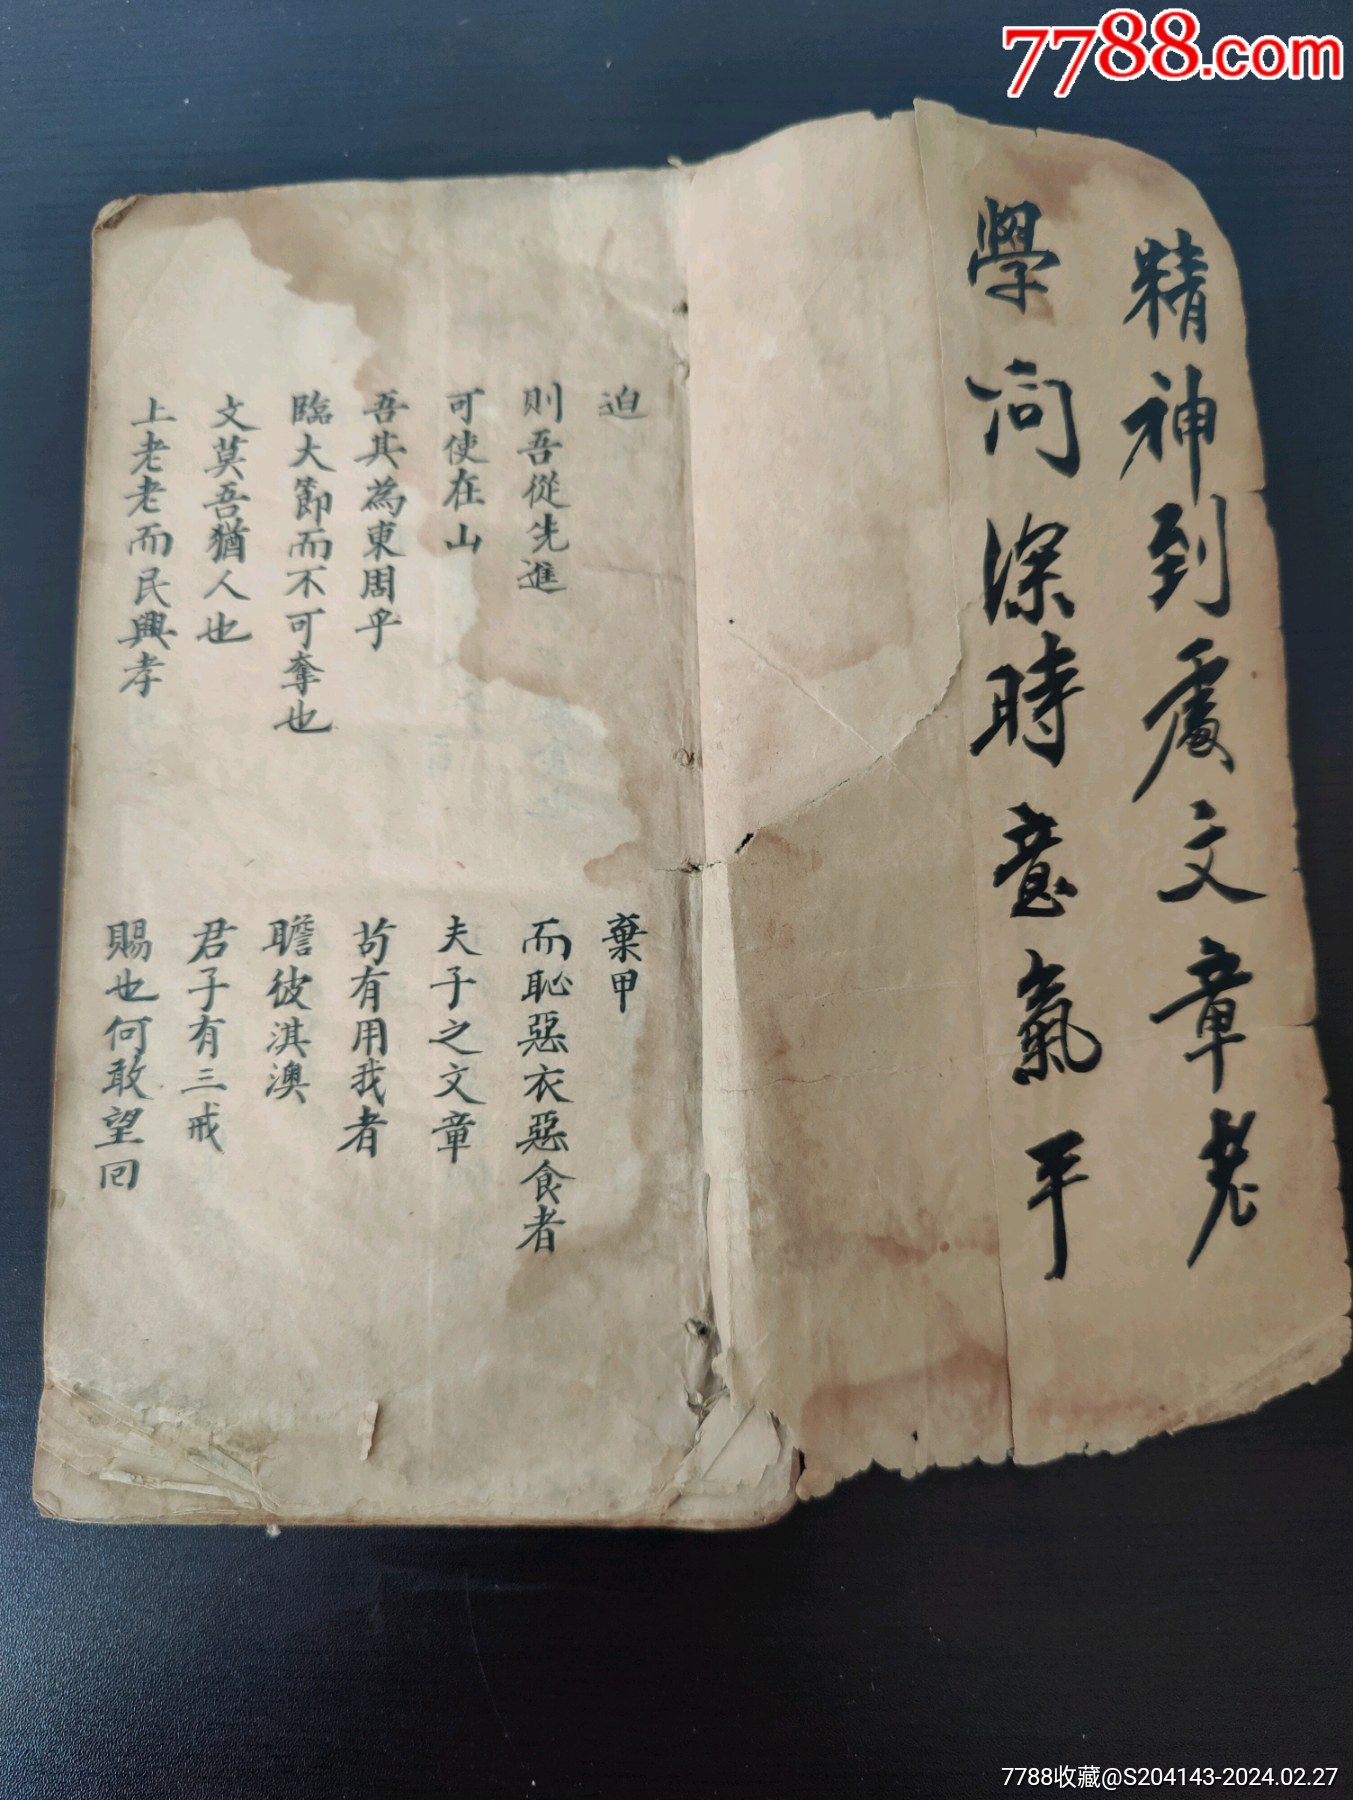 7788.com
精神到處文章老
學问深時意氣平
迫
則吾從先進
可使在山
吾其為東周乎
臨大節而不可奪也
文莫吾猶人也
上老老而民興孝
棄甲
而恥惡衣惡食者
夫子之文章
苟有用我者
瞻彼淇澳
君子有三戒
賜也何敢望回
7788收藏@S204143-2024.02.27